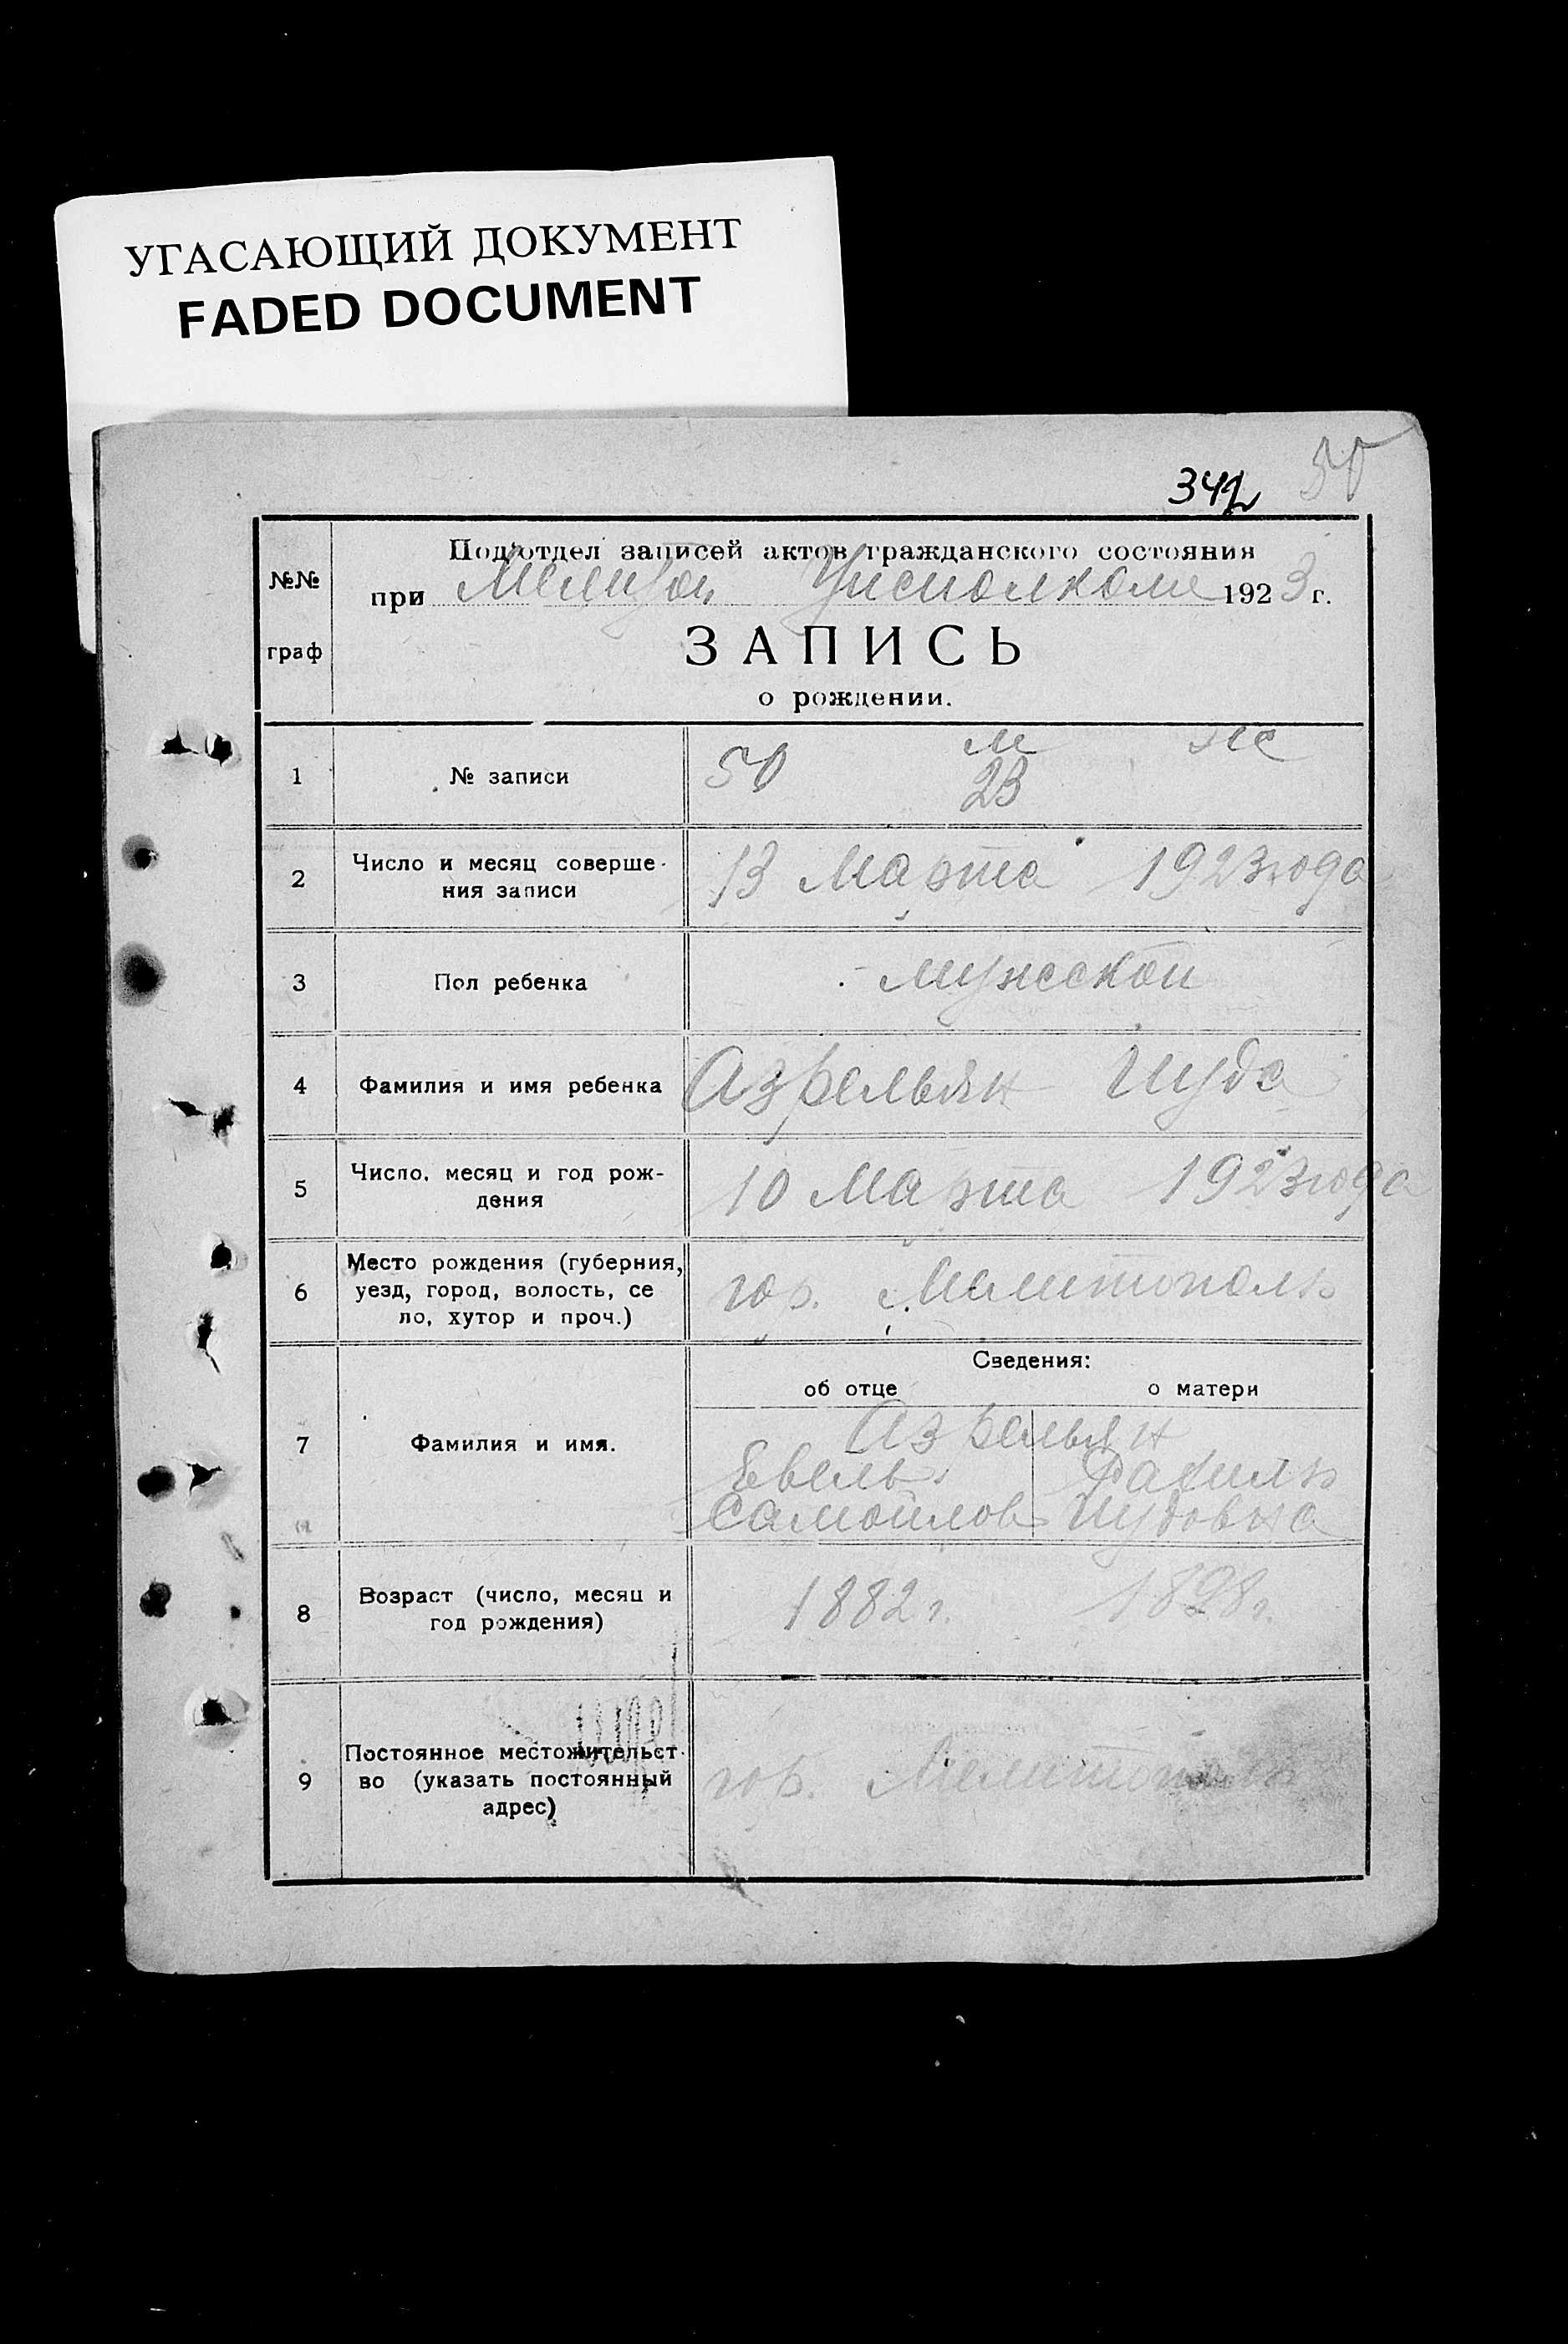 УГАСАЮЩИЙ ДОКУМЕНТ
FADED DOCUMENT
50
№№
граф
Подотдел записей актов гражданского состояния
при Мелитоп. Уисполкоме 1923 г.
ЗАПИСЬ
о рождении.
м ж
1 № записи 50 23
2 Число и месяц соверше-
ния записи
13 Марта 1923 года
3 Пол ребенка мужской
4 Фамилия и имя ребенка Азрельян Иуда
5 Число, месяц и год рож-
дения
10 Марта 1923 года
6 Место рождения (губерния,
уезд, город, волость, се
ло, хутор и проч.)
гор. Мелитополь
Сведения:
об отце о матери
7 Фамилия и имя.
Азрельян
Евель Рахиль
Самойлов Иудовна
8 Возраст (число, месяц и
год рождения)
1882 г. 1898 г.
9 Постоянное местожительст-
во (указать постоянный
адрес)
гор. Мелитополь